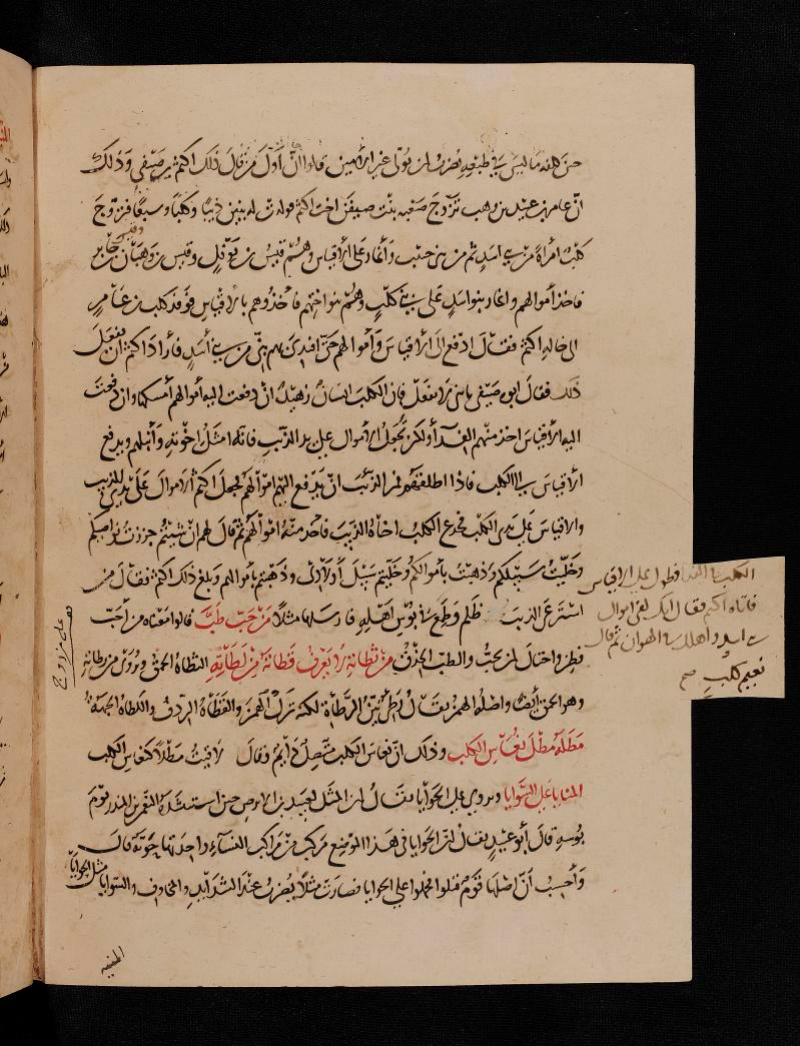 حسن ظنه ما ليس في طبعه يضرب لمن يؤتى غير الأمين قالوا إن أول من قال ذلك أكثم بن صيفي وذلك
أن عامر بن عبيد بن وهب تزوج صعبة بنت صيفي أخت أكثم فولدت له بنين ذئبا وكلبا وسبعا فتزوج
كلب امرأة من بني أسد ثم من بني حبيب وأغار على الأقياس وهم قيس بن نوفل وقيس بن وهبان وقيس بن جابر
فأخذ أموالهم وأغار بنو أسد على بني كلب وهم بنو أختهم فأخذوهم بالأقياس فوفد كلب بن عامر
إلى خاله أكثم فقال ادفع إلى الأقياس وأموالهم حتى أفتدي بهم بني من بني أسد فأراد أكثم أن يفعل
ذلك فقال أبو صيفي يا بني لا تفعل فإن الكلب إنسان زهيد إن دفعت إليه أموالهم أمسكها وإن دفعت
إليه الأقياس أخذ منهم الفداء ولكن تجعل الأموال على يد الذئب فإنه أمثل إخوته وأنبلهم ويدفع
الأقياس إلى الكلب فإذا أطلقهم فمر الذئب أن يدفع إليهم أموالهم فجعل أكثم الأموال على يدي الذئب
والأقياس على يدي الكلب فخدع الكلب أخاه الذئب فأخذ منه أموالهم ثم قال لهم إن شئتم جززت نواصيكم
وخليت سبيلكم وذهبت بأموالكم وخليتم سبيل أولادي وذهبتم بأموالكم وبلغ ذلك أكثم فقال من
استرعى الذئب ظلم وطمع في بؤس أهله فأرسلها مثلا من حب طب قالوا معناه من أحب
فطن واحتال لمن يحب والطب الحذق من ثطاته لا يعرف قطاته من لطاته الثطاة الحمق ويروى من رطاته
وهو الحمق أيضا وأصلها الهمز يقال رطئ بين الرطأة لكنه ترك الهمز والقطاة الردف واللطاة الجبهة
مطله مطل نعاس الكلب وذلك أن نعاس الكلب متصل دائم وقال لاقيت مطلا كنعاس الكلب
المنايا على السوايا ويروى على الحوايا يقال إن المثل لعبيد بن الأبرص حين استنشده النعمان بن المنذر يوم
بؤسه قال أبو عبيد يقال إن الحوايا في هذا الموضع مركب من مراكب النساء واحدتها حوية قال
وأحسب أن أصلها قوم قتلوا فحملوا على الحوايا فصارت مثلا يضرب عند الشدائد والمخاوف والسوايا مثل الحوايا
المنية
على من زوج
الكلب الفداء فطول على الأقياس
فأتاه أكثم فقال إنك لفي أموال
بني أسد وأهلك في الهوان ثم قال
نعيم كلب
صح